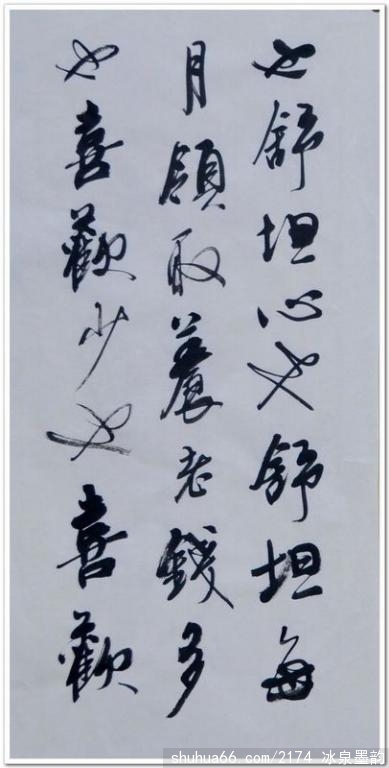 也舒坦心也舒坦每
月領取養老錢多
也喜歡少也喜歡
shuhua66.com/2174 冰泉墨韵